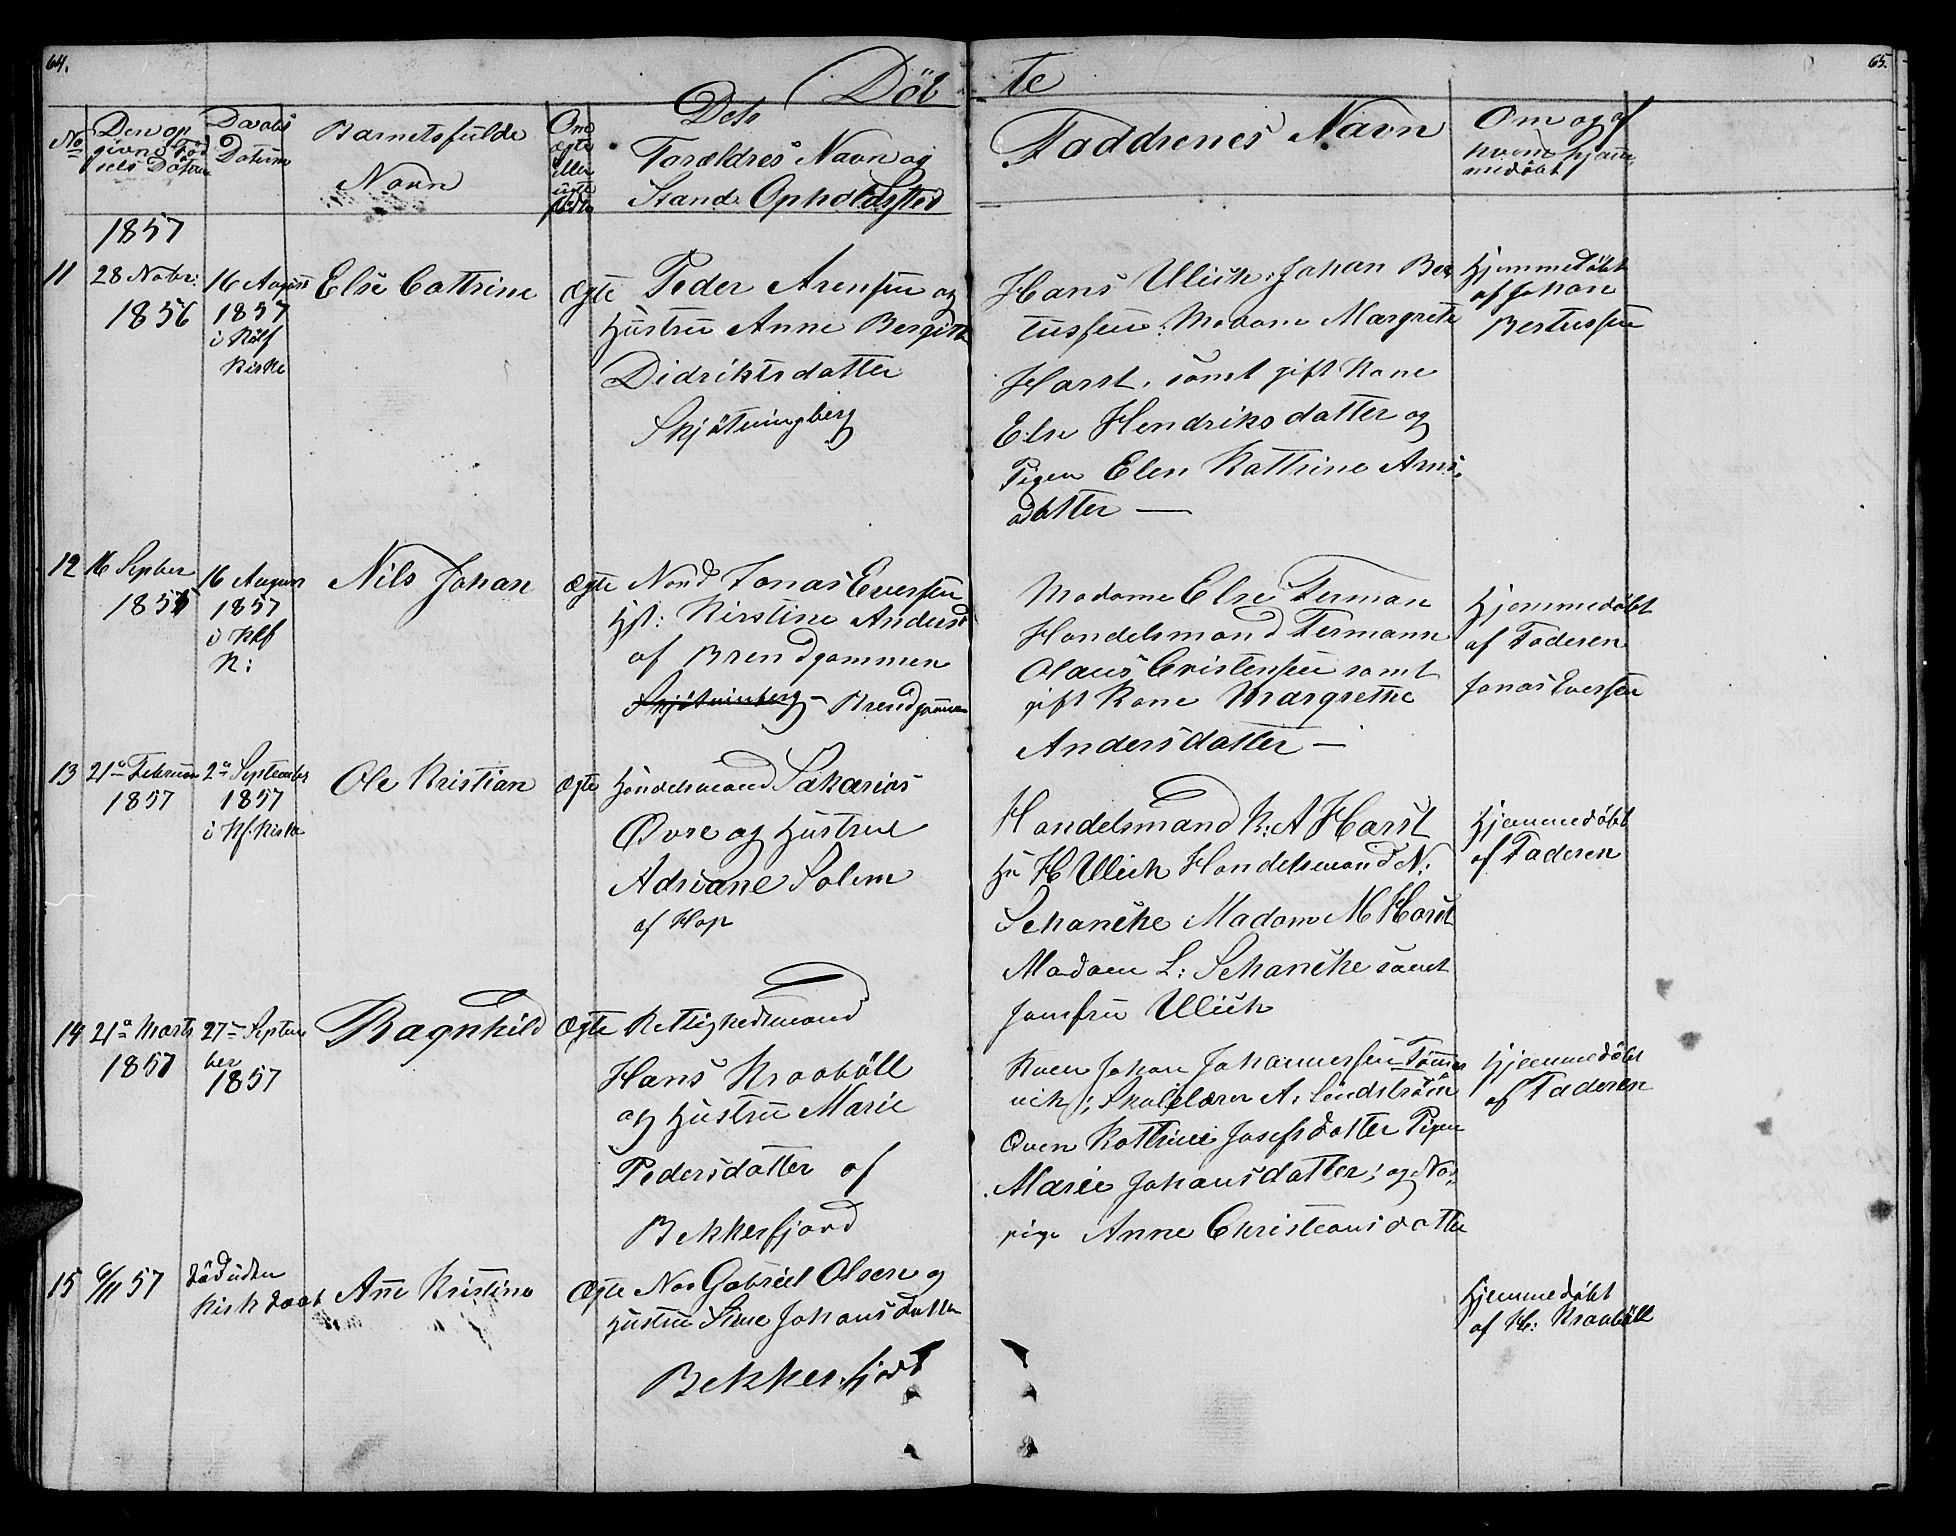 64.
65.
Döb te
No
Den op
givne Föd
sels Datum
Daabs
Datum
Barnets fulde
Navn
Om
ægte
eller
uægte
födte
Dets
Forældres Navn og
Stand Opholdssted
Faddrenes Navn
Om og af
hvem hjem
medöbt
1857
11 28 Nobr: 16 August Else Cattrine Ægte Peder Arensen og
1856 1857 Hustru Anne Bergitte
i Kölf Didriksdatter
Kirke Skjötningberg
Hans Ulich, Johan Ber
tussen: Madam Margrete
Harst, samt gift Kone
Else Hendriksdatter og
Pigen Elen Kattrine Arns
datter —
Hjemmedöbt
af Johan
Bertussen
12 16 Sepber 16 August Nils Johan Ægte Nord Jonas Eversen
1857 Hst: Kirstine Andersd
i Klf af Brendgammen
K: Skjötninberg - Brendgammen
Madame Else Ferman
Handelsmand Fermann
Olaus Cristensen samt
gift Kone Margrethe
Andersdatter —
Hjemmedöbt
af Faderen
Jonas Eversen
13 21de Februar 2den September Ole Kristian Ægte Handelsmand Sakarias
1857 1857 Qvre og Hustrue
i Kf. Kirke Adriane Solem
af Hop
Handelsmand K: A Harst
H Ulich Handelsmand N:
Schanche Madam M Harst
Madam L: Schanche samt
Jomfru Ulich
Hjemmedöbt
af Faderen
14 21de Marts 27de Septem Ragnhild Ægte Rettighedsmand
1857 ber Hans Kraaböll
1857 og Hustru Marie
Pedersdatter af
Bekkerfjord
Kven Johan Johannessen Tömmer
vik; Skolelærer A: Lindström
Qven Kattrine Josefsdatter Pigen
Marie Johansdatter; og Nor,
pige Anne Christeansdatter
Hjemmedöbt
af Faderen
15 6/11 57 död uden Ane Kristine Ægte Nor Gabriel Olsen og
Kirkdaab Hustru Stine Johansdatter
Bekkerfjord
Hjemmedöbt
af H: Kraaböll